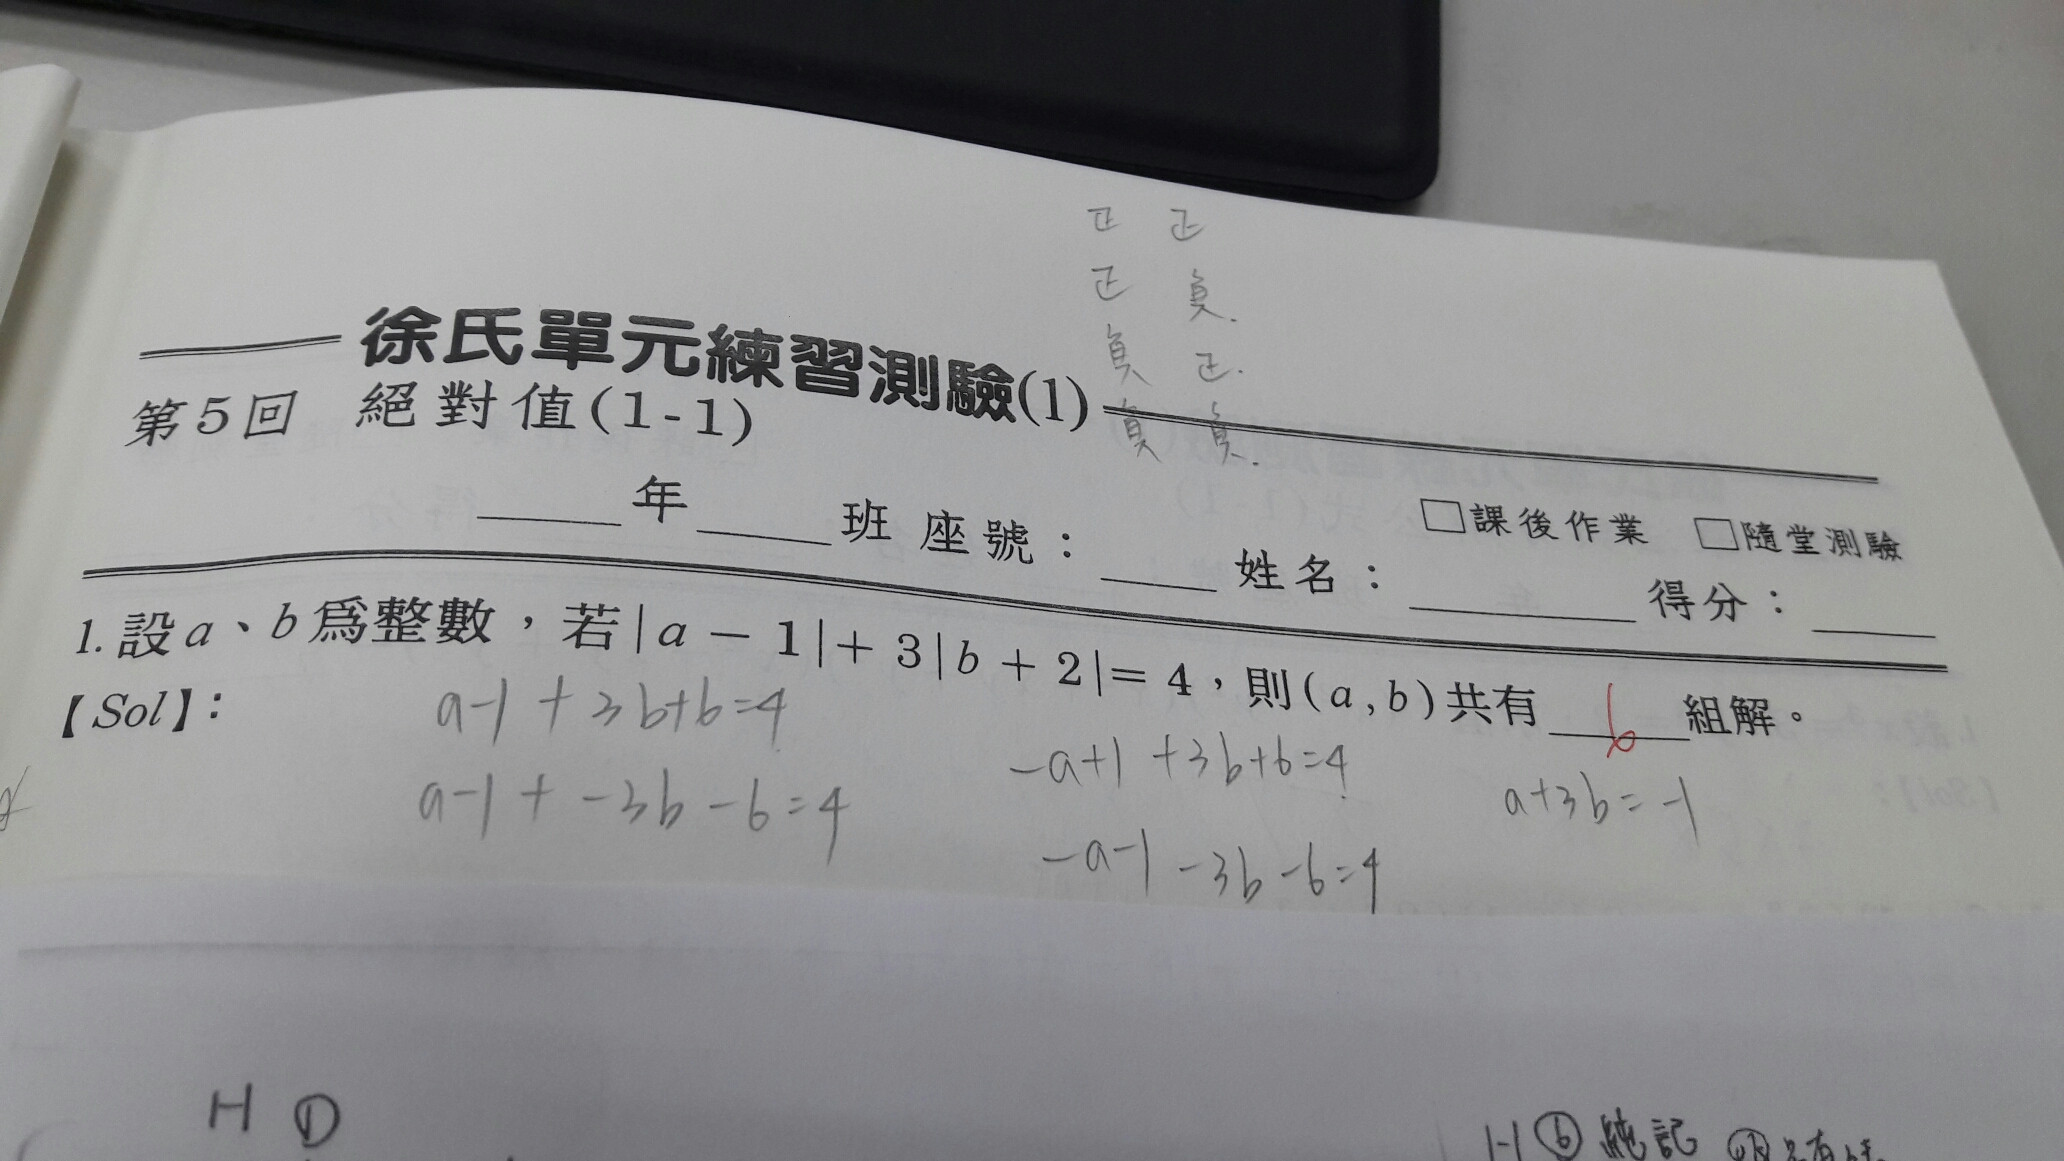 正 正
正 負.
負 正.
負 負.
徐氏單元練習測驗(1)
第5回 絕對值(1-1)
□課後作業 □隨堂測驗
____年____班 座號：____姓名：____得分：____
1.設a、b爲整數，若|a－1|＋3|b＋2|＝4，則(a,b)共有 6 組解。
【Sol】：
a-1+3b+6=4
-a+1+3b+6=4
a+3b=-1
a-1+-3b-6=4
-a-1-3b-6=4
H D
1-1 ⑥ 純記